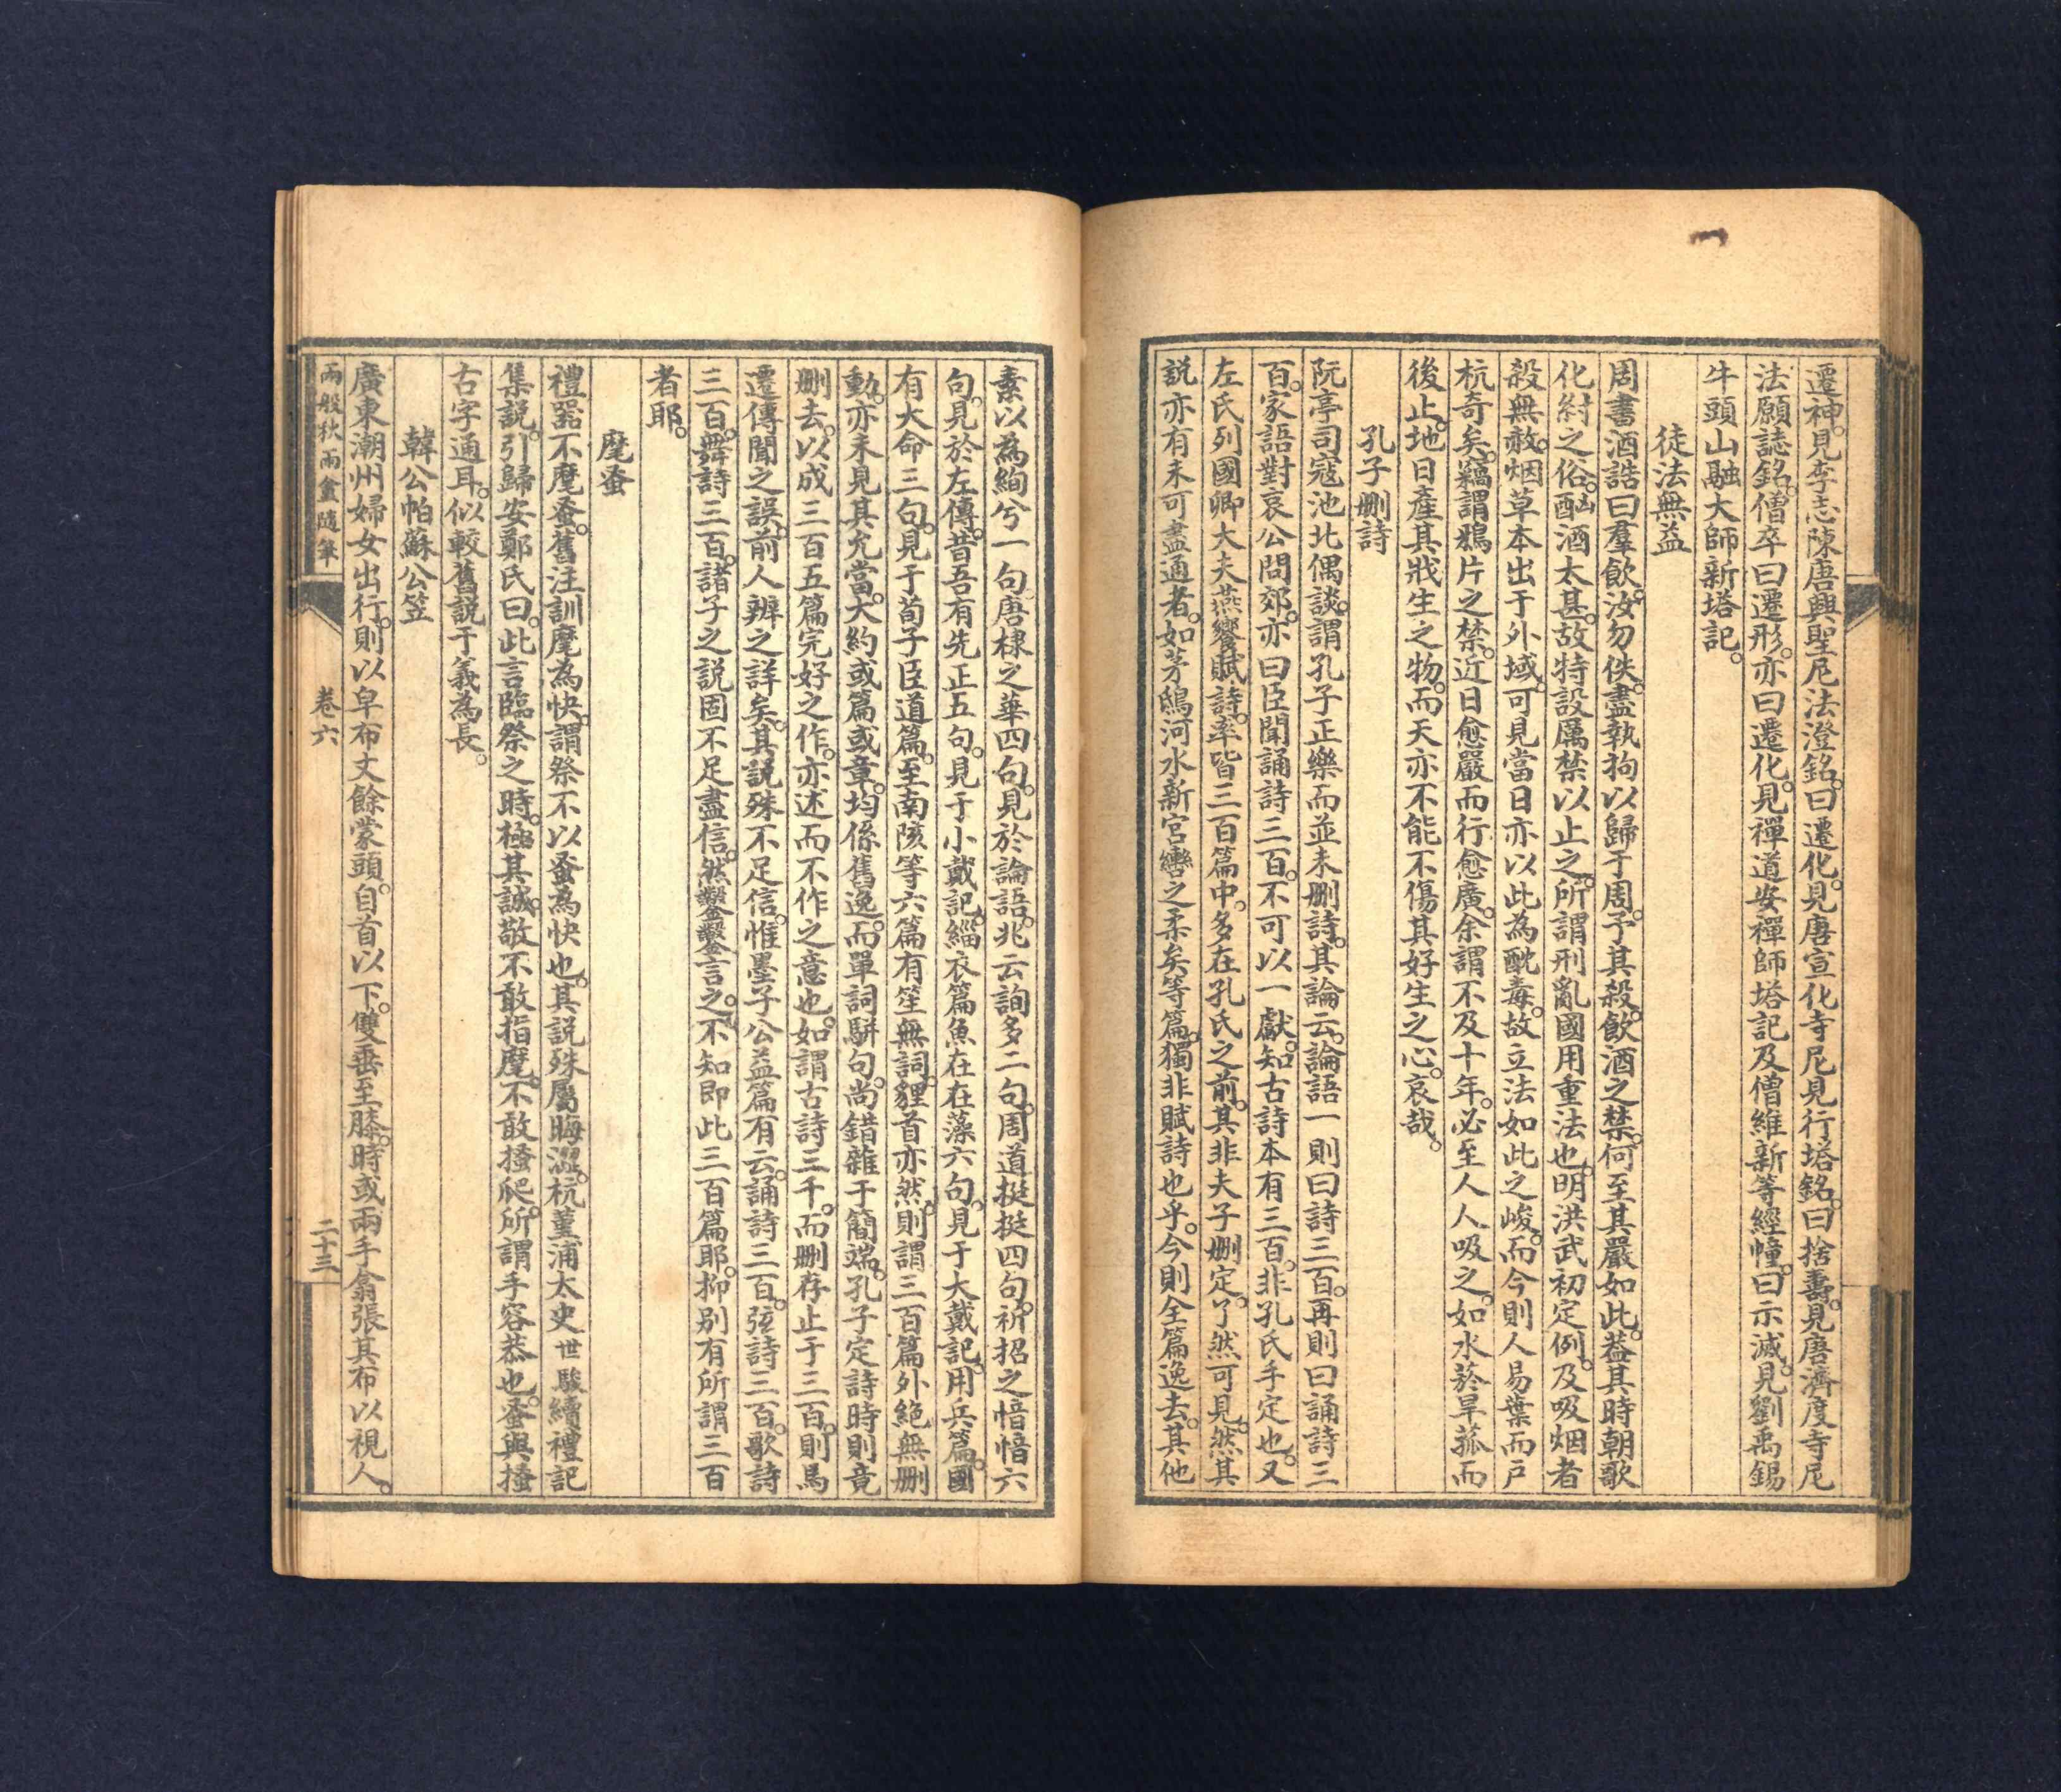 遷神。見李志暕唐興聖尼法澄銘。曰遷化。見唐宣化寺尼見行塔銘。曰捨壽。見唐濟度寺尼
法願誌銘。僧卒曰遷形。亦曰遷化。見禪道安禪師塔記及僧維新等經幢。曰示滅。見劉禹錫
牛頭山融大師新塔記。
徒法無益
周書酒誥曰羣飲。汝勿佚。盡執拘以歸于周。予其殺。飲酒之禁。何至其嚴如此。葢其時朝歌
化紂之俗。酗酒太甚。故特設厲禁以止之。所謂刑亂國用重法也。明洪武初定例。及吸烟者
殺無赦。烟草本出于外域。可見當日亦以此為酖毒。故立法如此之峻。而今則人易葉而戶
杭奇矣。竊謂鴉片之禁。近日愈嚴而行愈廣。余謂不及十年。必至人人吸之。如水菸旱菰而
後止。地日產其戕生之物。而天亦不能不傷其好生之心。哀哉。
孔子刪詩
阮亭司寇池北偶談。謂孔子正樂而並未刪詩。其論云。論語一則曰詩三百。再則曰誦詩三
百。家語對哀公問郊。亦曰臣聞誦詩三百。不可以一獻。知古詩本有三百。非孔氏手定也。又
左氏列國卿大夫燕饗賦詩。率皆三百篇中。多在孔氏之前。其非夫子刪定。了然可見。然其
說亦有未可盡通者。如茅鴟河水新宮轡之柔矣等篇。獨非賦詩也乎。今則全篇逸去。其他
素以為絢兮一句。唐棣之華四句。見於論語。兆云詢多二句。周道挺挺四句。祈招之愔愔六
句。見於左傳。昔吾有先正五句。見于小戴記緇衣篇。魚在在藻六句。見于大戴記。用兵篇。國
有大命三句。見于荀子臣道篇。至南陔等六篇有笙無詞。貍首亦然。則謂三百篇外絕無刪
動。亦未見其允當。大約或篇或章。均係舊逸。而單詞駢句。尚錯雜于簡端。孔子定詩時則竟
刪去。以成三百五篇完好之作。亦述而不作之意也。如謂古詩三千。而刪存止于三百。則馬
遷傳聞之誤。前人辨之詳矣。其說殊不足信。惟墨子公益篇有云。誦詩三百。弦詩三百。歌詩
三百。舞詩三百。諸子之說固不足盡信。然鑿鑿言之。不知即此三百篇耶。抑別有所謂三百
者耶。
麾蚤
禮器不麾蚤。舊注訓麾為快。謂祭不以蚤為快也。其說殊屬晦澀。杭堇浦太史世駿續禮記
集說。引歸安鄭氏曰。此言臨祭之時。極其誠敬不敢指麾。不敢搔爬。所謂手容恭也。蚤與搔
古字通耳。似較舊說于義為長。
韓公帕蘇公笠
廣東潮州婦女出行。則以皁布丈餘蒙頭。自首以下。雙垂至膝。時或兩手翕張其布以視人。
兩般秋雨盦隨筆　卷六　二十三